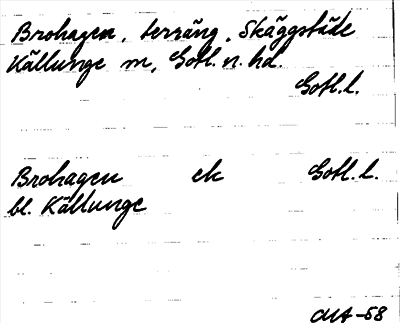 Brohagen, terräng, Skäggstäde
Källunge m, Gotl. n. hd.
Gotl. l.
Brohagen ek Gotl. l.
bl. Källunge
-58